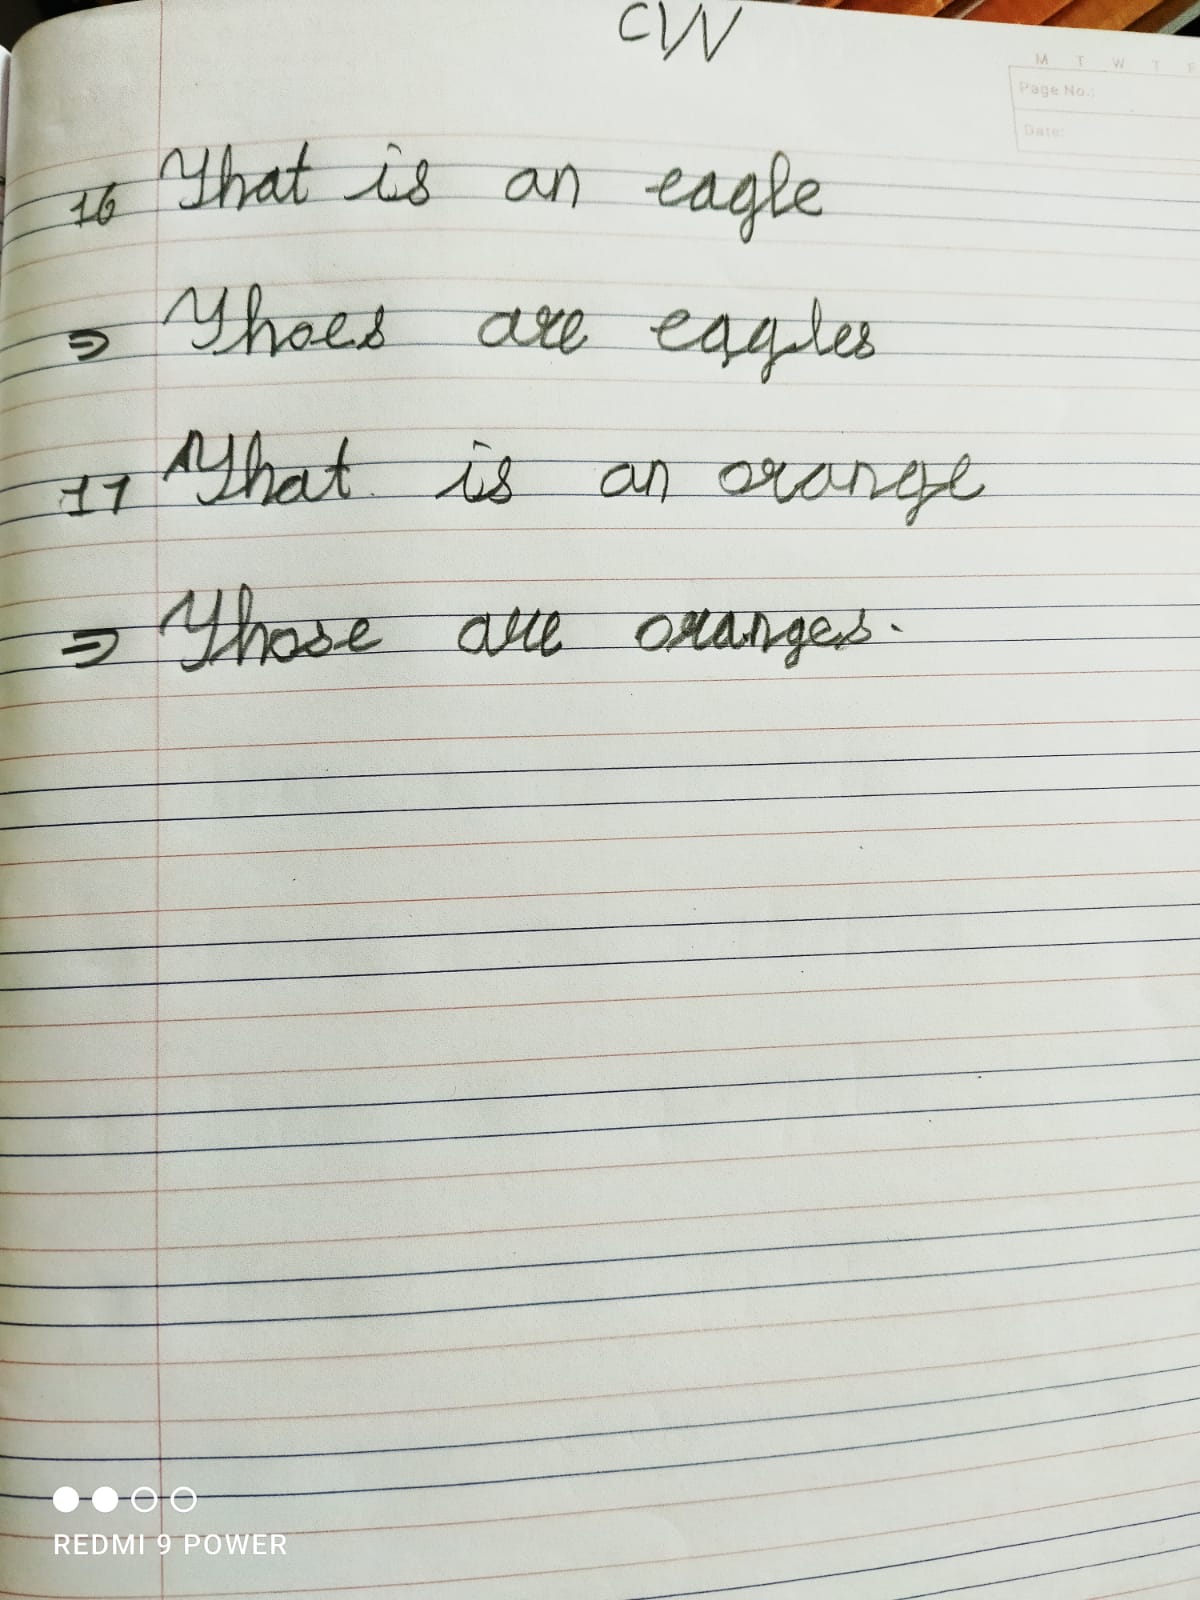 CW
M T W T F
Page No.:
Date:
16 That is an eagle
⇒ Thoes are eagles
17 That is an orange
⇒ Those are oranges.
REDMI 9 POWER